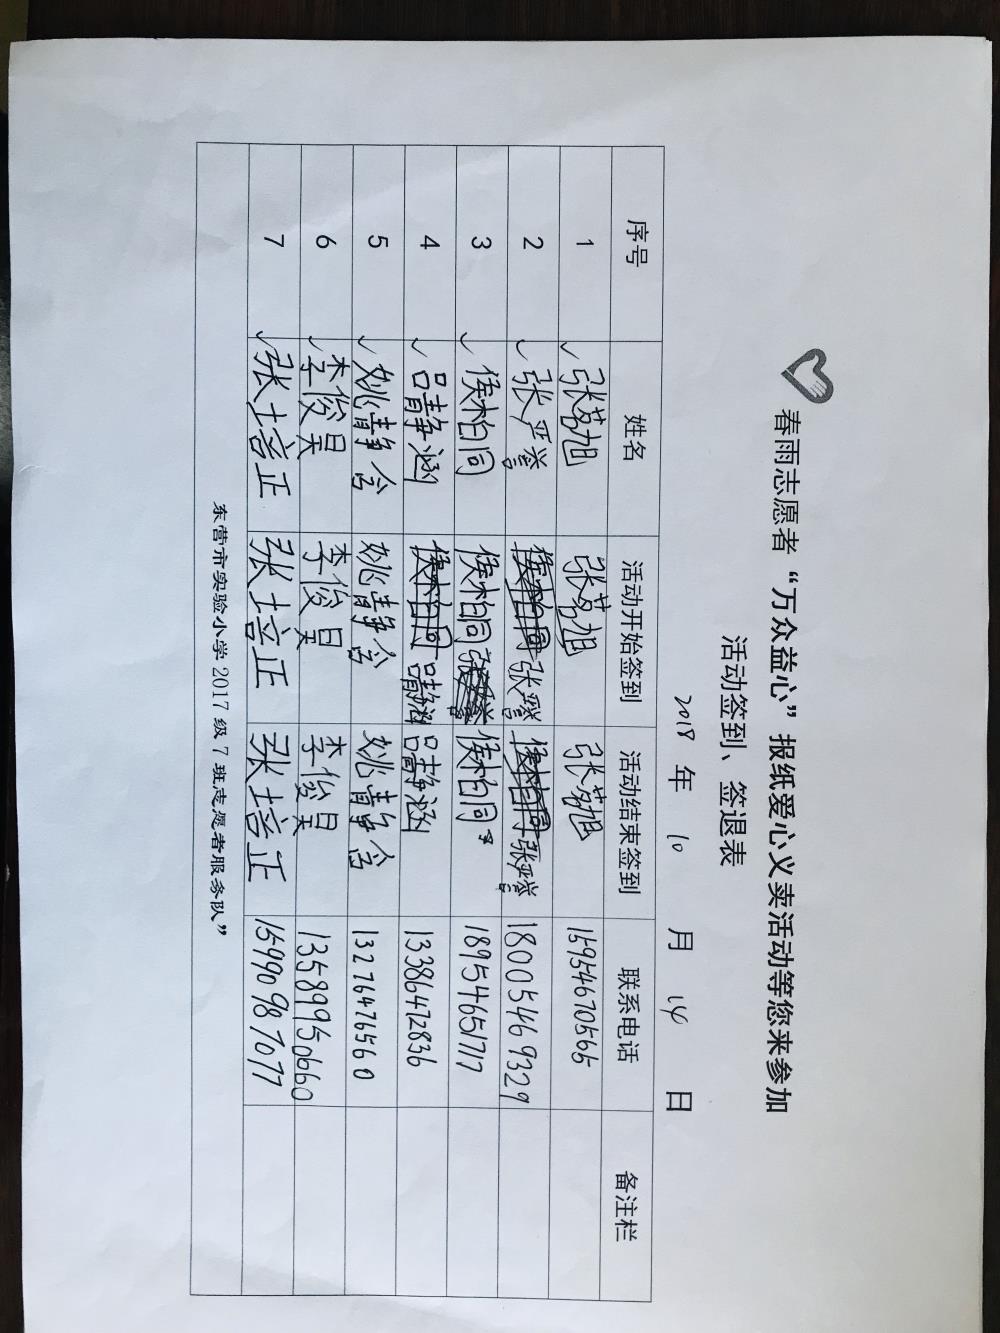 春雨志愿者“万众益心”报纸爱心义卖活动等您来参加
活动签到、签退表
2018 年 10 月 14 日
序号 姓名 活动开始签到 活动结束签到 联系电话 备注栏
1 张茗旭 张茗旭 张茗旭 15954670565
2 张严誉 张严誉 张严誉 18005469329
3 侯柏同 侯柏同 侯柏同 18954651717
4 静涵 静涵 静涵 13386472836
5 姚静含 姚静含 姚静含 13276476560
6 李俊昊 李俊昊 李俊昊 13589950660
7 张培正 张培正 张培正 15990987077
东营市实验小学2017级7班志愿者服务队”